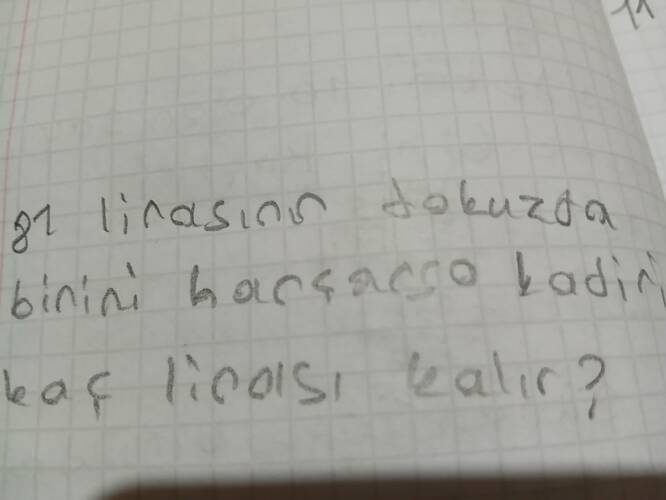 81 lirasının dokuzda
birini harcarsa kadir,
kaç lirası kalır?